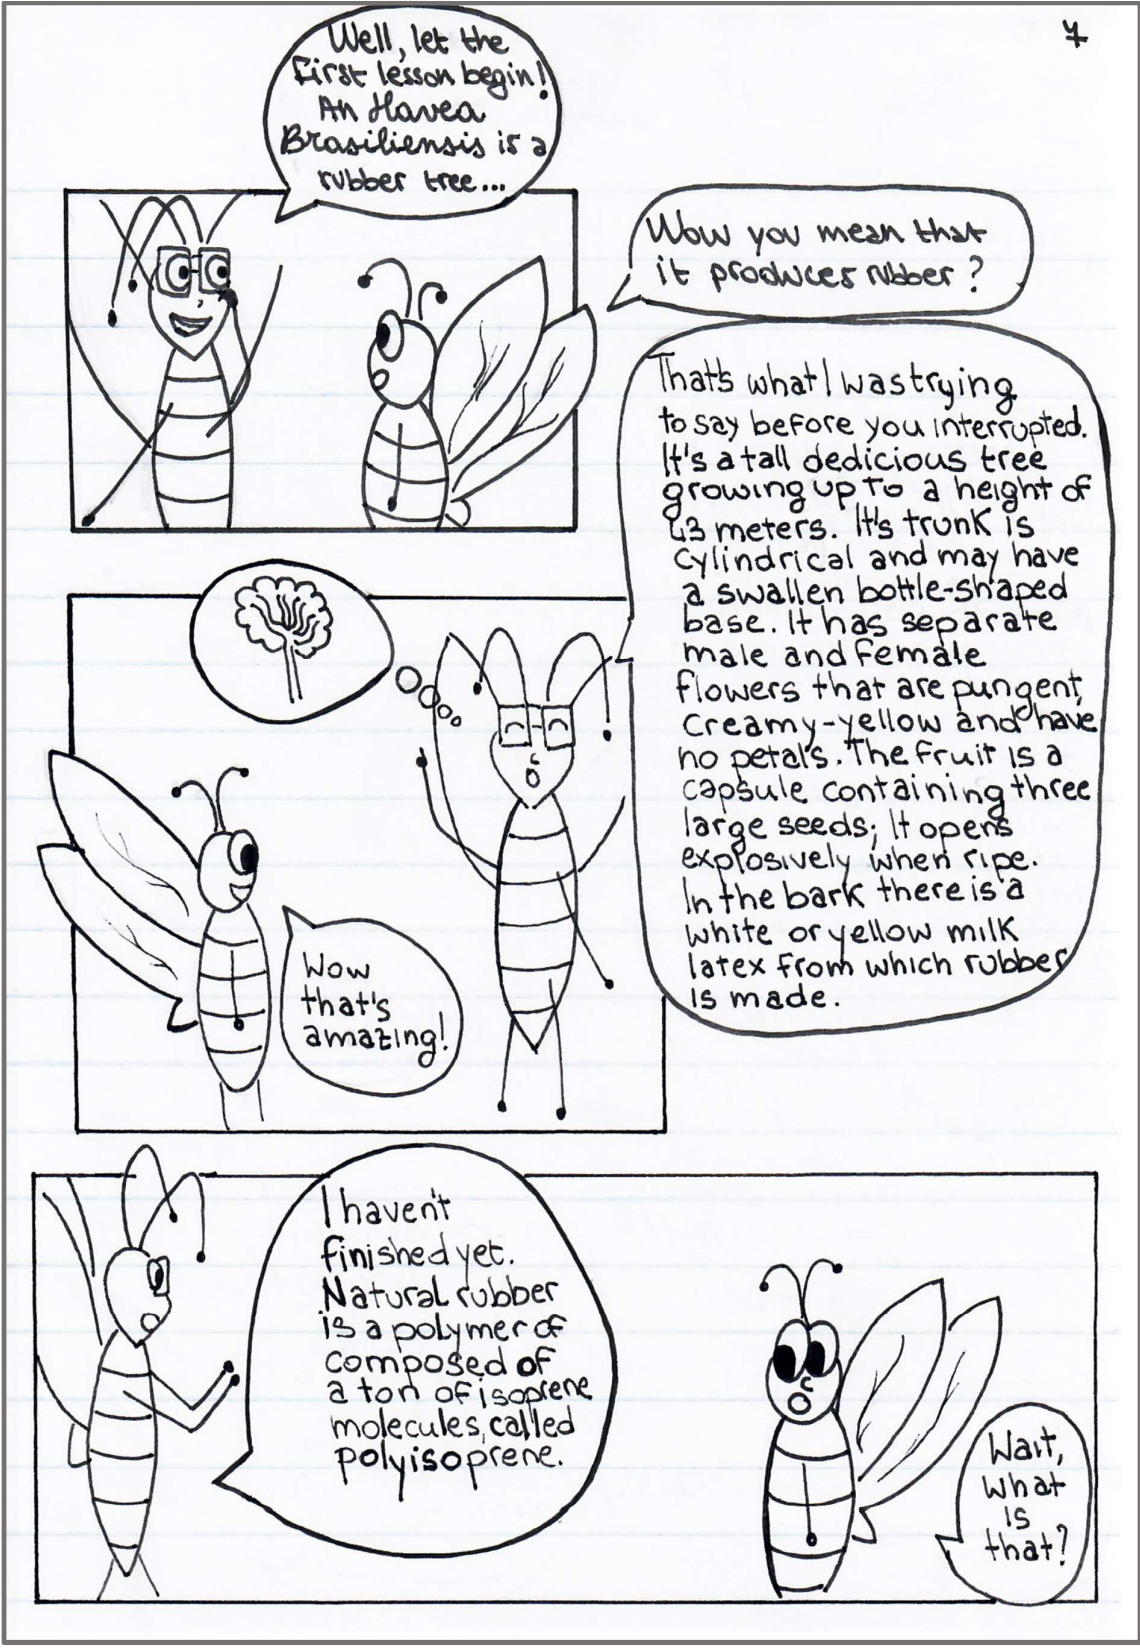 7
Well, let the
first lesson begin!
An Havea
Brasiliensis is a
rubber tree...
Wow you mean that
it produces rubber?
That's what I was trying
to say before you interrupted.
It's a tall dedicious tree
growing up to a height of
43 meters. It's trunk is
cylindrical and may have
a swallen bottle-shaped
base. It has separate
male and female
flowers that are pungent,
creamy-yellow and have
no petals. The fruit is a
capsule containing three
large seeds; It opens
explosively when ripe.
In the bark there is a
white or yellow milk
latex from which rubber
is made.
Wow
that's
amazing!
I haven't
finished yet.
Natural rubber
is a polymer of
composed of
a ton of isoprene
molecules, called
polyisoprene.
Wait,
what
is
that?